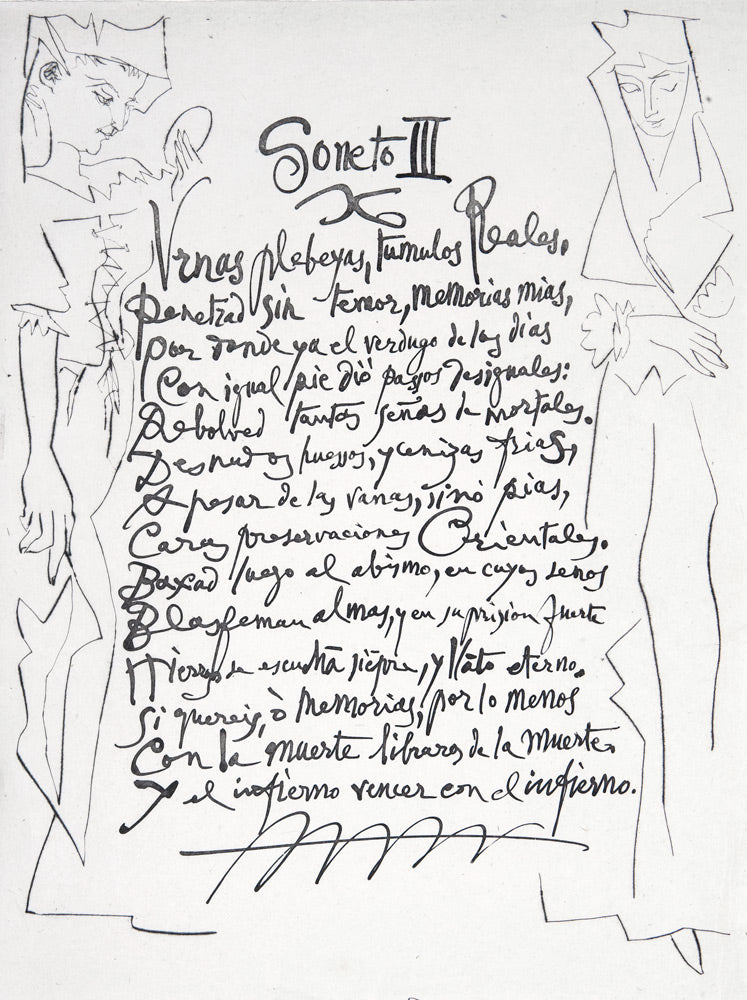 Soneto III
Vrnas plebeyas, tumulos Reales,
Penetrad sin temor, memorias mias,
Por donde ya el verdugo de los dias
Con igual pie diò passos desiguales:
Rebolved tantas señas de mortales.
Desnudos huessos, y cenizas frias,
A pesar de las vanas, sinò pias,
Caras preservaciones Orientales.
Baxad luego al abismo, en cuyos senos
Blasfeman almas, y en su prision fuerte
Hierros se escuchã siẽpre, y llãto eterno.
Si quereis, ò memorias, por lo menos
Con la muerte libraros de la muerte.
Y el infierno vencer con el infierno.